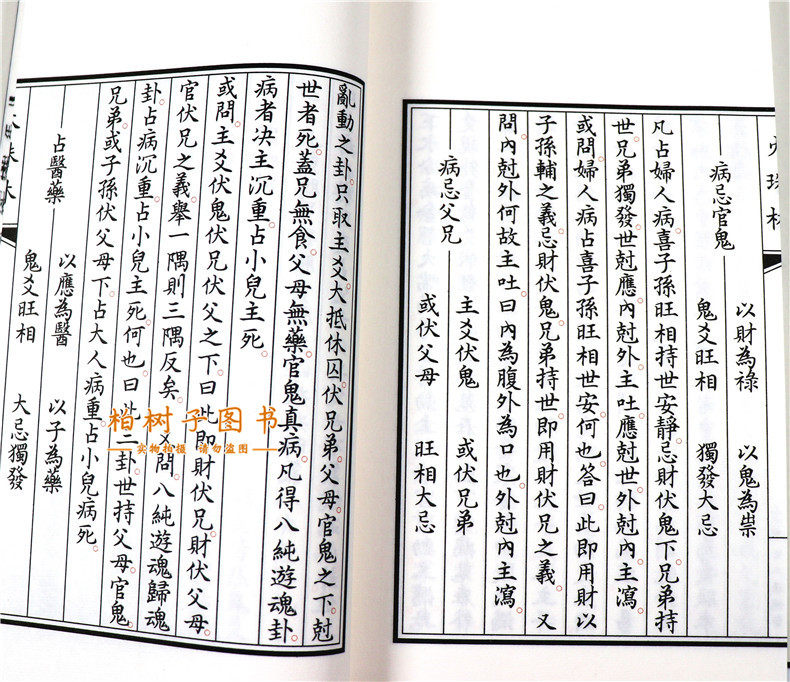 火珠林
以財為祿　以鬼為祟
病忌官鬼
鬼爻旺相　獨發大忌
凡占婦人病喜子孫旺相持世安靜忌財伏鬼下兄弟持
世兄弟獨發世尅應內尅外主吐應尅世外尅內主瀉
或問婦人病占喜子孫旺相世安何也答曰此即用財以
子孫輔之義忌財伏鬼兄弟持世即用財伏兄之義又
問內尅外何故主吐曰內為腹外為口也外尅內主瀉
主爻伏鬼　或伏兄弟
病忌父兄
或伏父母　旺相大忌
亂動之卦只取主爻大抵休囚伏兄弟父母官鬼之下尅
世者死蓋兄無食父母無藥官鬼真病凡得八純遊魂卦
病者決主沉重占小兒主死
或問主爻伏鬼伏兄伏父之下曰此即財伏兄財伏父母
官伏兄之義舉一隅則三隅反矣又問八純遊魂歸魂
卦占病沉重占小兒主死何也曰此二卦世持父母官鬼
兄弟或子孫伏父母下占大人病重占小兒病死
以應為醫　以子為藥
占醫藥
鬼爻旺相　大忌獨發
柏树子图书
实物拍摄 请勿盗图